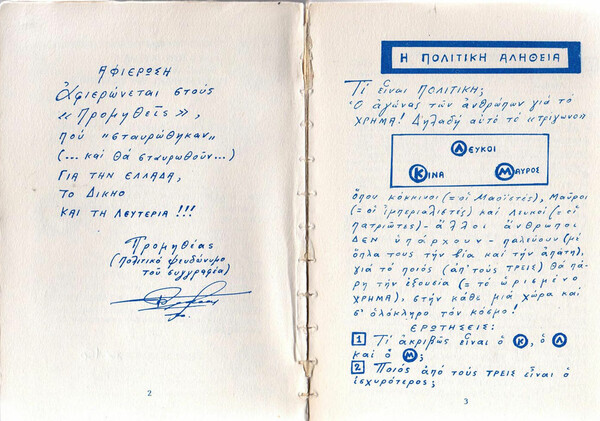 ΑΦΙΕΡΩΣΗ
Ἀφιερώνεται στούς
«Προμηθεῖς»,
πού "σταυρώθηκαν"
(... καί θά σταυρωθοῦν...)
ΓΙΑ ΤΗΝ ΕΛΛΑΔΑ,
ΤΟ ΔΙΚΗΟ
ΚΑΙ ΤΗ ΛΕΥΤΕΡΙΑ!!!
Προμηθέας
(Πολιτικό ψευδώνυμο
τοῦ συγγραφέα)
2
Η ΠΟΛΙΤΙΚΗ ΑΛΗΘΕΙΑ
Τί εἶναι ΠΟΛΙΤΙΚΗ;
Ὁ ἀγώνας τῶν ἀνθρώπων γιά τό
ΧΡΗΜΑ! Δηλαδή αὐτό τό «τρίγωνο»
ΛΕΥΚΟΙ
ΚΙΝΑ ΜΑΥΡΟΣ
ὅπου κόκκινοι (=οἱ Μαοϊστές), Μαῦροι
(=οἱ ἰμπεριαλιστές) καί Λευκοί (=οἱ
πατριῶτες) - ἄλλοι ἄνθρωποι
ΔΕΝ ὑπάρχουν - παλεύουν (μέ
ὅπλα τους τήν βία καί τήν ἀπάτη),
γιά τό ποιός (ἀπ' τούς ΤΡΕΙΣ) θά πά-
ρη τήν ἐξουσία (= τό ὡρισμένο
ΧΡΗΜΑ), στήν κάθε μιά χώρα καί
σ' ὁλόκληρο τόν κόσμο!
ΕΡΩΤΗΣΕΙΣ:
1 Τί ἀκριβῶς εἶναι ὁ Κ, ὁ Λ
καί ὁ Μ;
2 Ποιός ἀπό τούς ΤΡΕΙΣ εἶναι ὁ
ἰσχυρότερος;
3